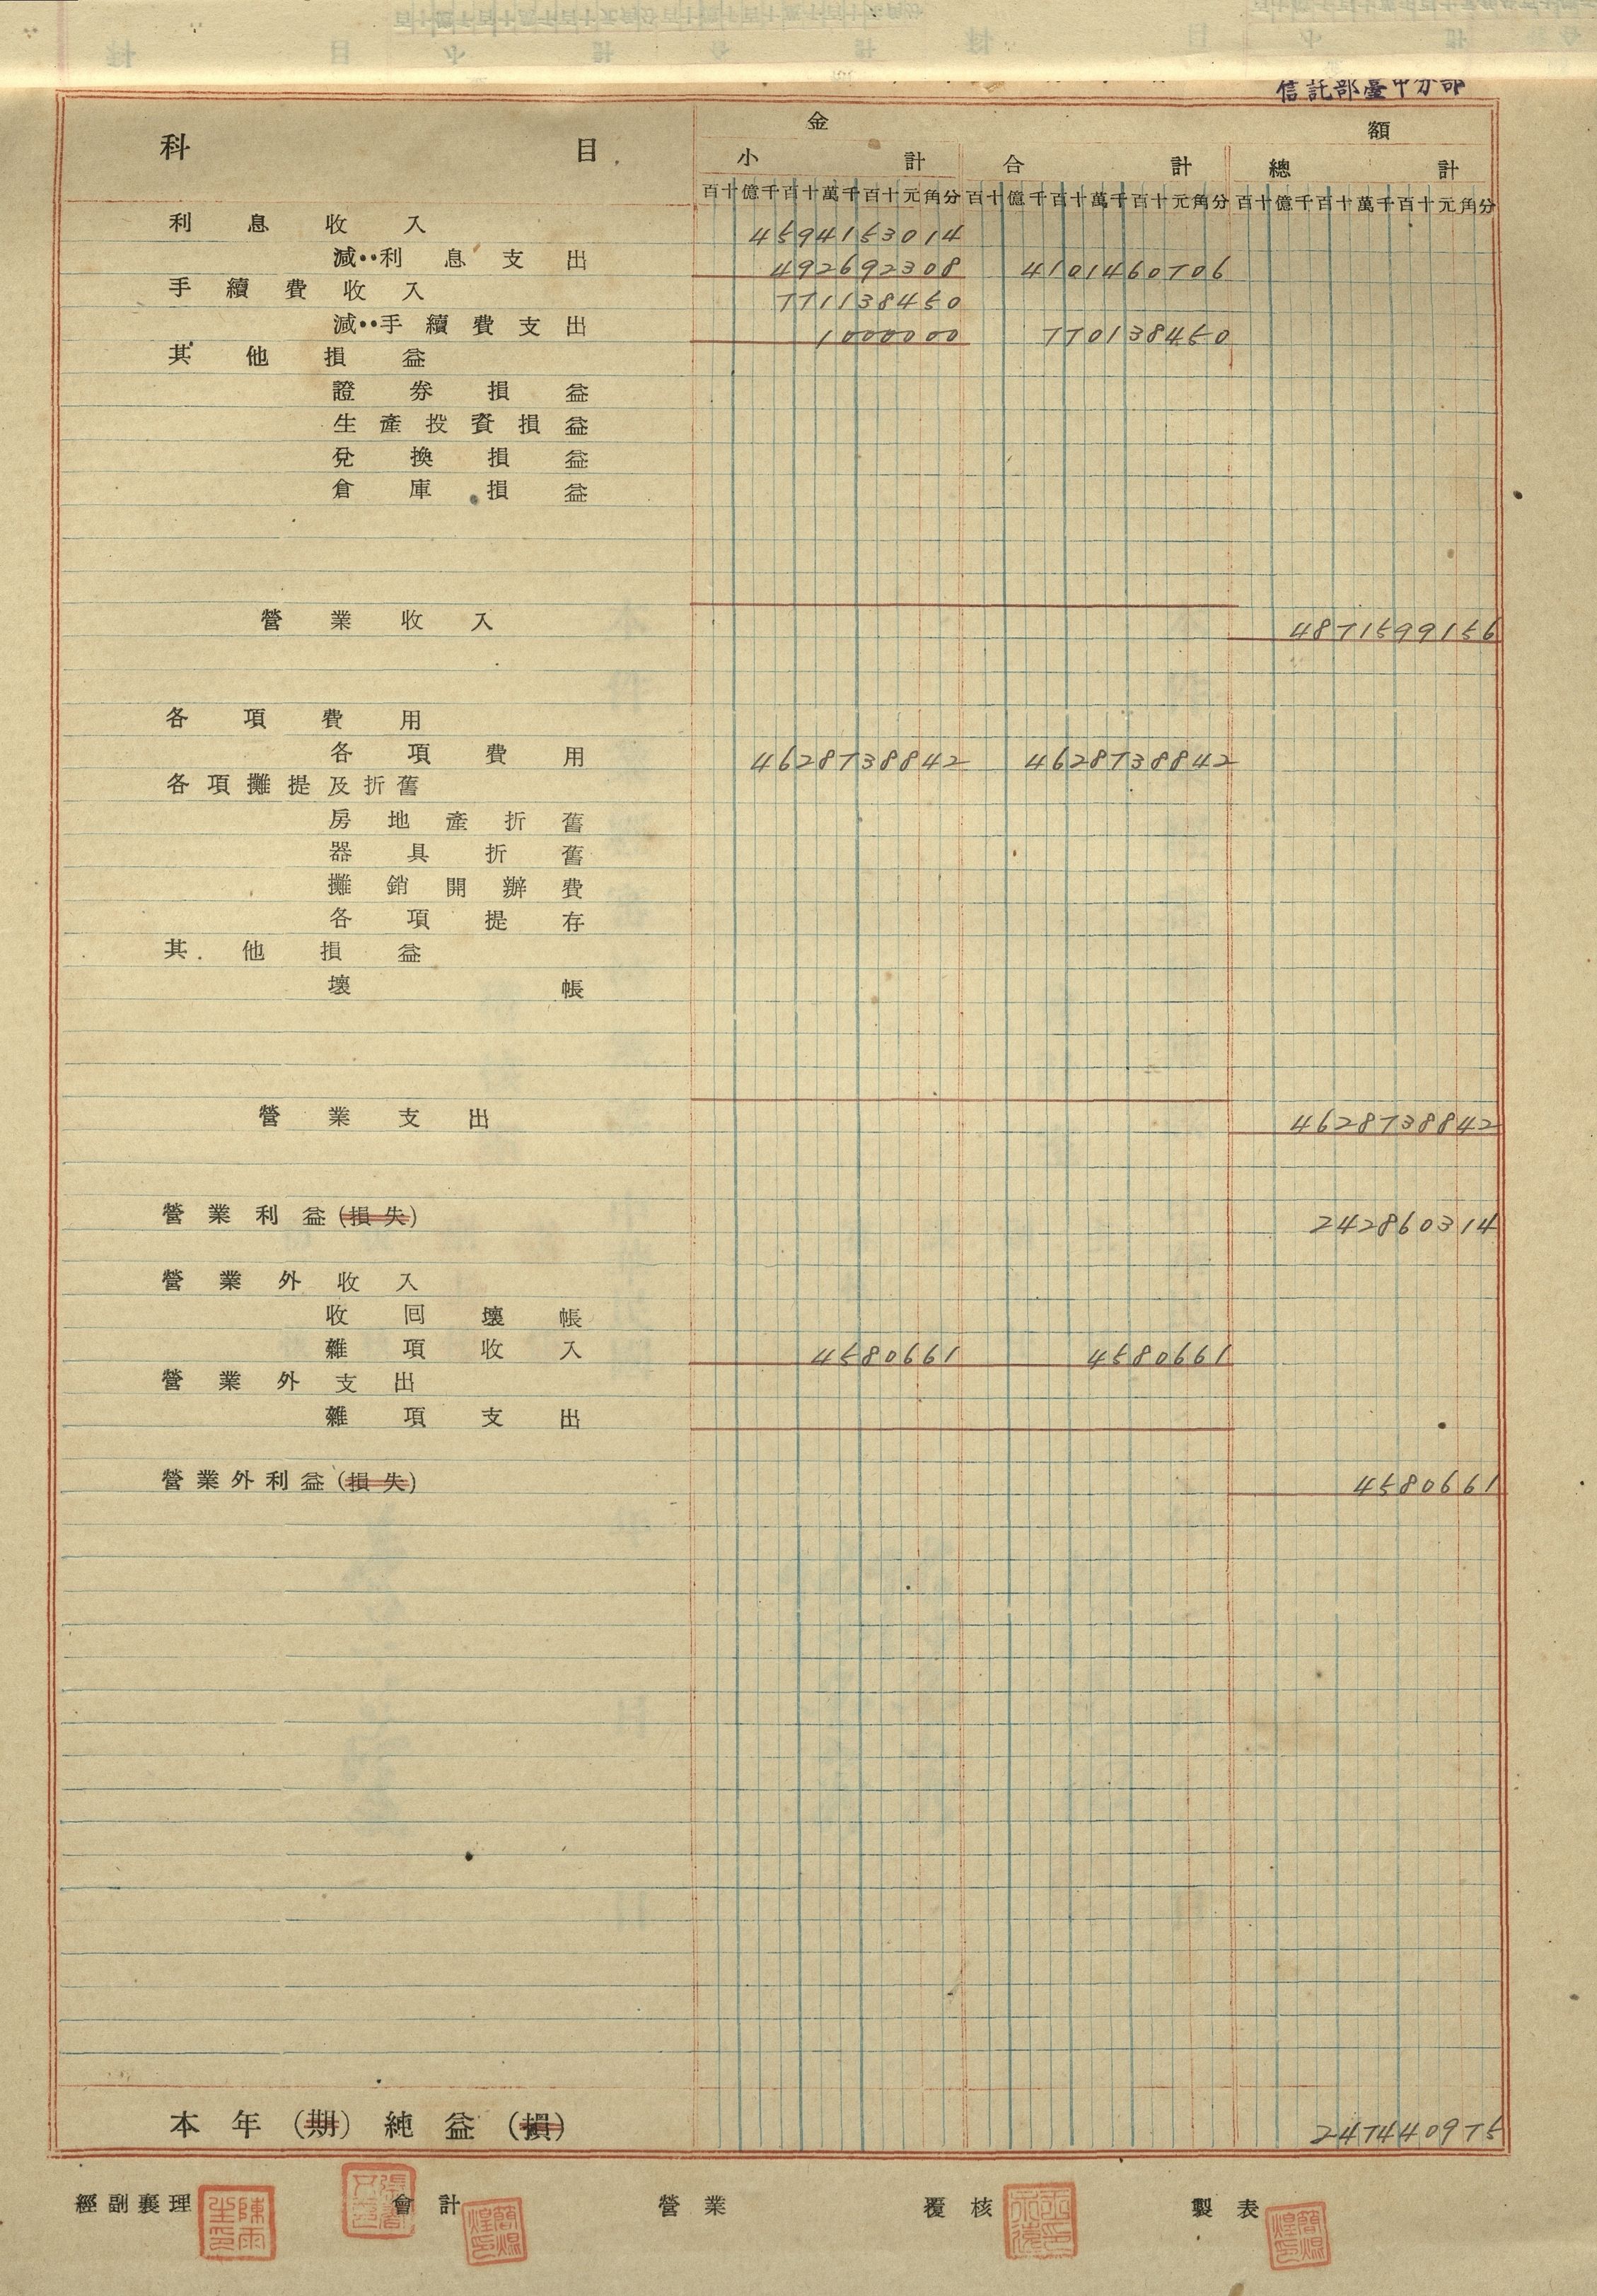 信託部臺中分部
科目 金額
小計 合計 總計
百十億千百十萬千百十元角分 百十億千百十萬千百十元角分 百十億千百十萬千百十元角分
利息收入 4594153014
減··利息支出 492692308 4101460706
手續費收入 771138450
減··手續費支出 1000000 770138450
其他損益
證券損益
生產投資損益
兌換損益
倉庫損益
營業收入 4871599156
各項費用
各項費用 4628738842 4628738842
各項攤提及折舊
房地產折舊
器具折舊
攤銷開辦費
各項提存
其他損益
壞帳
營業支出 4628738842
營業利益(損失) 242860314
營業外收入
收回壞帳
雜項收入 4580661 4580661
營業外支出
雜項支出
營業外利益(損失) 4580661
本年(期)純益(損) 247440975
經副襄理 會計 營業 覆核 製表